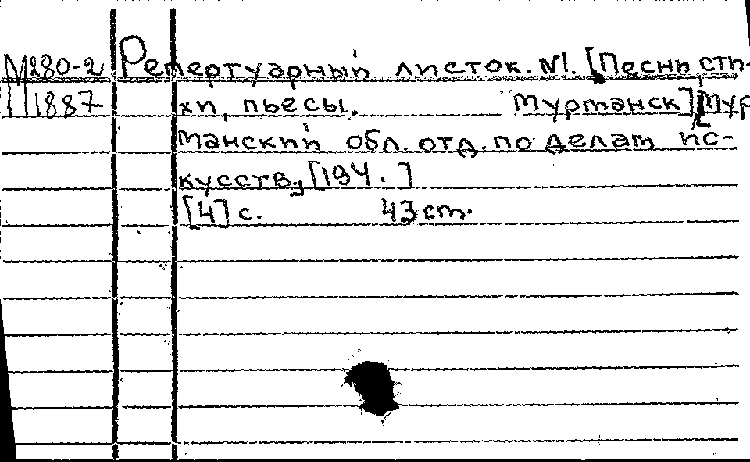 М280-2 Репертуарный листок. №1. [Песни, сти-
1887 хи, пьесы. Мурманск] [Мур
манский обл. отд. по делам ис-
кусств, [194. ]
[4] с. 43 ст.